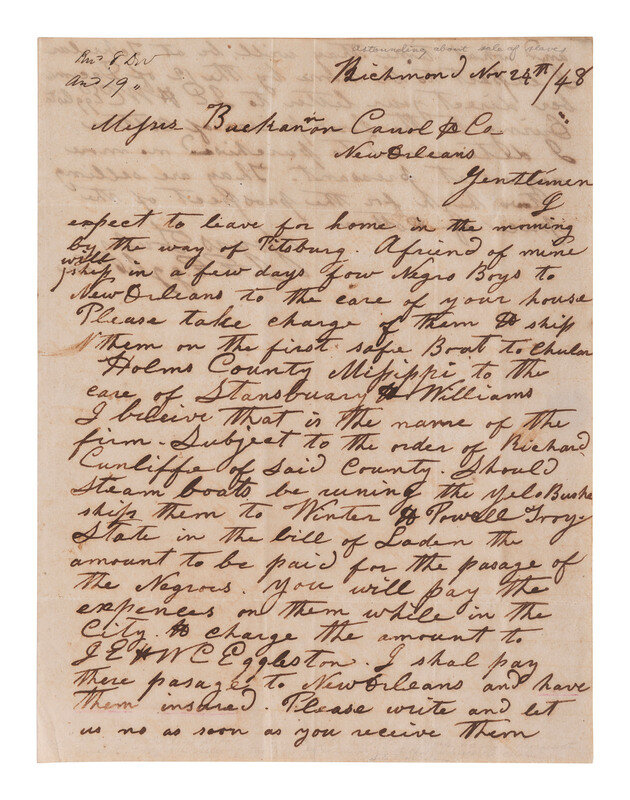 Astounding about sale of slaves
Richmond Nov 24th/48
Messrs Buckannon Carrol & Co
New Orleans
Gentlimen
I
expect to leave for home in the morning
by the way of Pitsburg. A friend of mine
will
ship in a few days fow Negro Boys to
New Orleans to the care of your house
Please take charge of them & ship
them on the first safe Boat to Chula
Holms County Missippi to the
care of Stansbuary & Williams
I beceive that is the name of the
firm. Subject to the order of Richard
Cunliffe of Said County. Should
Steam boats be runing the Yelo Bushe
ship them to Winter & Powell Troy
State in the bill of Laden the
amount to be paid for the pasage of
the Negros. You will pay the
expences on them while in the
City & charge the amount to
J E & W C Eggleston. I shal pay
there pasage to New Orleans and have
them insured. Please write and let
us no as soon as you receive them